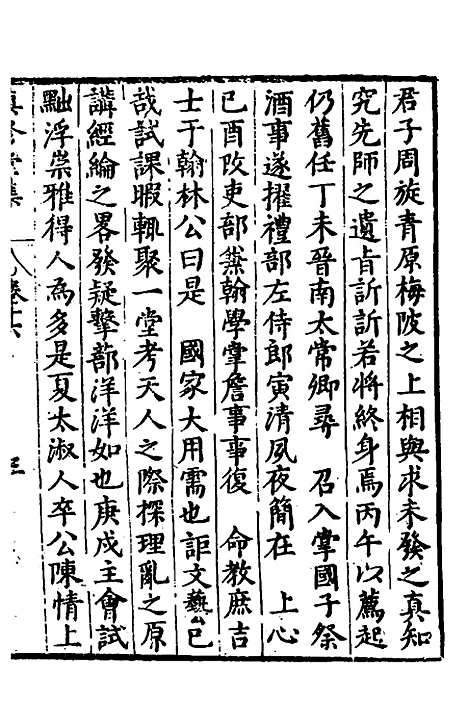 君子周旋青原梅陂之上相與求未發之真知
究先師之遺旨訢訢若將終身焉丙午以薦起
仍舊任丁未晉南太常卿尋 召入掌國子祭
酒事遂擢禮部左侍郎寅清夙夜簡在 上心
已酉改吏部兼翰學掌詹事事復 命教庶吉
士于翰林公曰是 國家大用需也詎文藝已
哉試課暇輒聚一堂考天人之際探理亂之原
講經綸之畧發疑擊蔀洋洋如也庚戌主會試
黜浮崇雅得人為多是夏太淑人卒公陳情上
卷十六
三